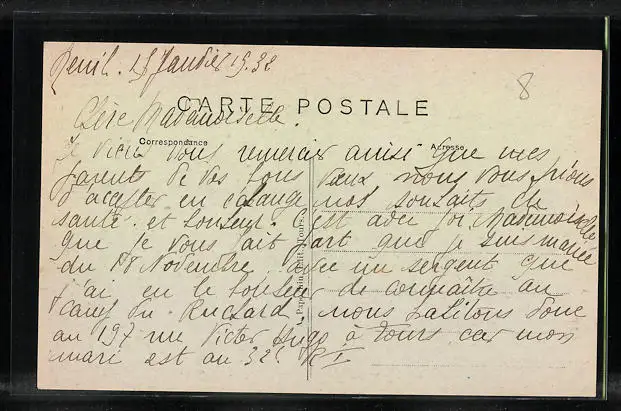 Reuil. 15 Janvier 19.32
8
CARTE POSTALE
Chère Mademoiselle.
Correspondance
Adresse
Je viens vous remercier ainsi que mes
parents de vos bons vœux nous vous prions
d'accepter en échange nos souhaits de
santé et bonheur. C'est avec joi Mademoiselle
que je vous fait part que je suis mariée
du 18 Novembre avec un sergent que
j'ai eu le bonheur de connaitre au
camp du Ruchard. nous habitons donc
au 197 rue Victor Hugo à Tours car mon
mari est au 32e RI